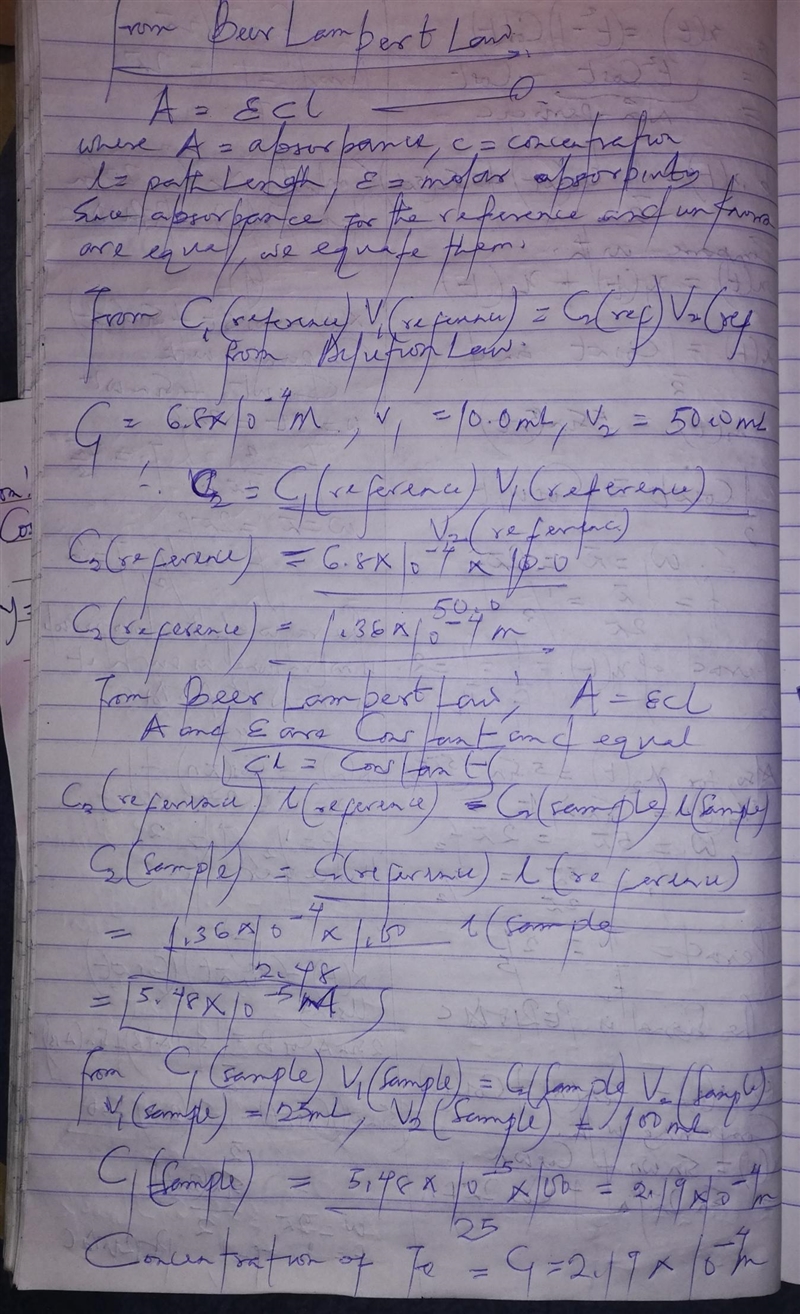 From Beer Lambert Law
A = εcl
where A = absorbance, c = concentration
l = path Length, ε = molar absorptivity
Since absorbance for the reference and unknown
are equal, we equate them.
From C₁(reference) V₁(reference) = C₂(ref) V₂(ref
from Dilution Law.
C₁ = 6.8x10⁻⁴m, V₁ = 10.0mL, V₂ = 50.0mL
∴ C₂ = C₁(reference) V₁(reference)
V₂(reference)
C₂(reference) = 6.8x10⁻⁴ x 10.0
50.0
C₂(reference) = 1.36x10⁻⁴m
From Beer Lambert Law, A = εcl
A and ε are Constant and equal
CL = Constant
C₂(reference) l(reference) = C₂(sample) l(sample)
C₂(sample) = C₂(reference) l(reference)
l(sample
= 1.36x10⁻⁴ x 1.00
2.48
= 5.48x10⁻⁵M
From C₁(sample) V₁(sample) = C₂(sample) V₂(sample)
V₁(sample) = 25mL, V₂(sample) = 100mL
C₁(sample) = 5.48 x 10⁻⁵ x 100 = 2.19x10⁻⁴m
25
Concentration of Fe = C₁ = 2.19 x 10⁻⁴m